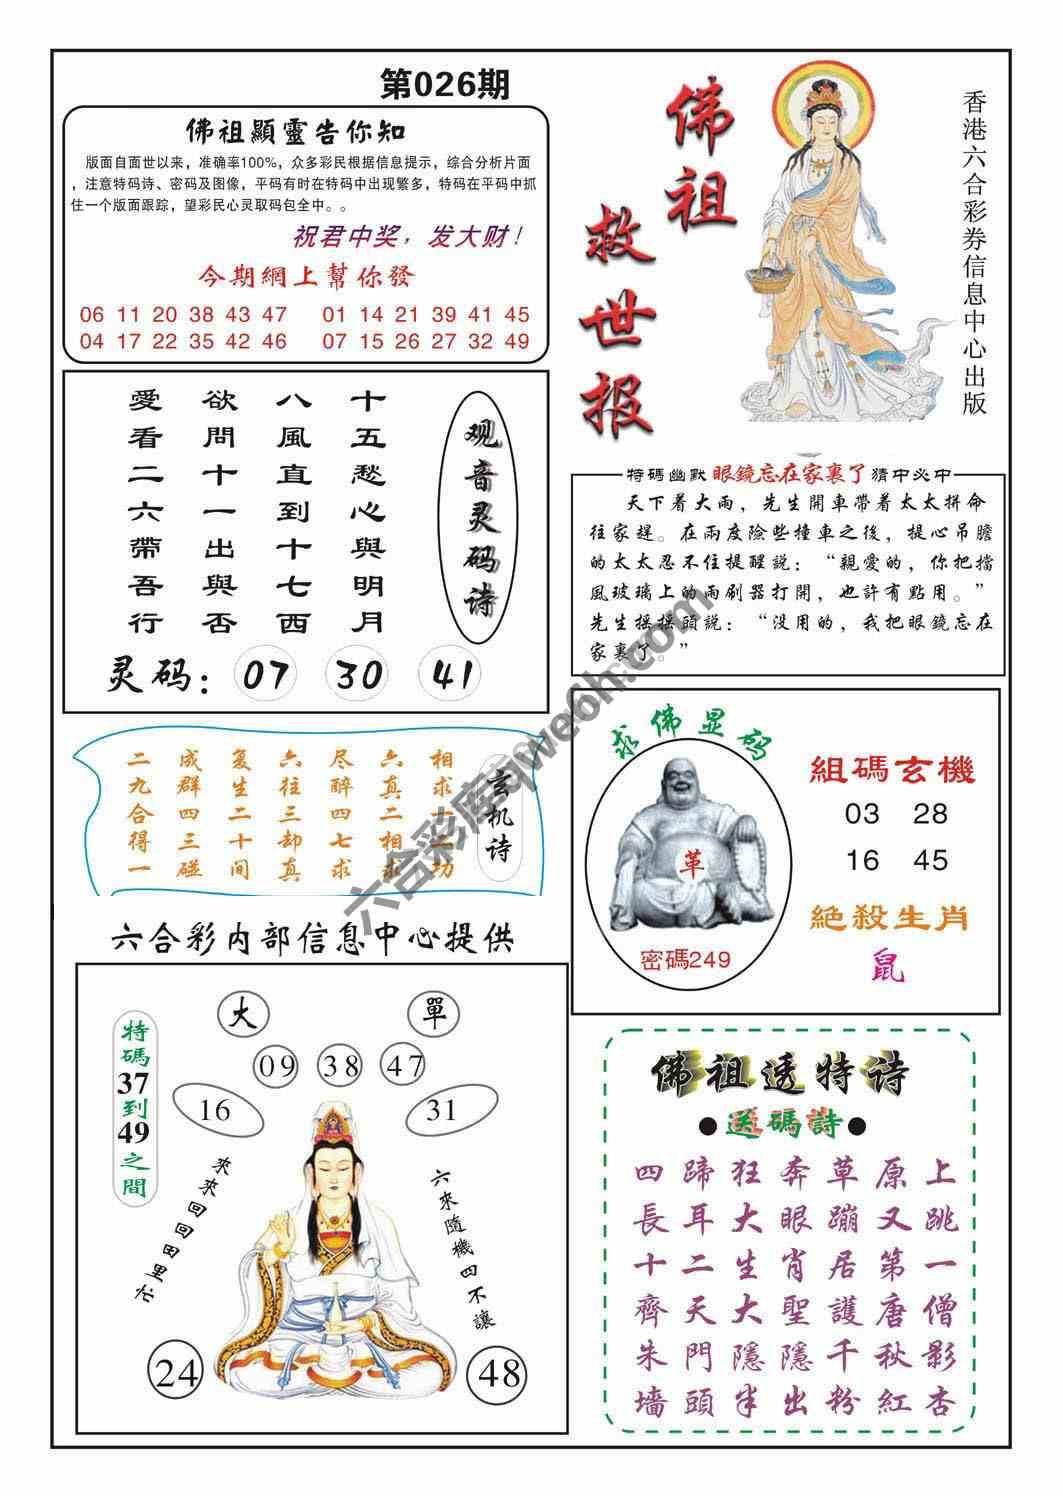 第026期
佛祖顯靈告你知
版面自面世以来，准确率100%，众多彩民根据信息提示，综合分析片面
，注意特码诗、密码及图像，平码有时在特码中出现繁多，特码在平码中抓
住一个版面跟踪，望彩民心灵取码包全中。。
祝君中奖，发大财！
今期網上幫你發
06 11 20 38 43 47 01 14 21 39 41 45
04 17 22 35 42 46 07 15 26 27 32 49
佛祖
救世报
香港六合彩券信息中心出版
观音灵码诗
十五愁心與明月
八風直到十七西
欲問十一出與否
愛看二六帶吾行
灵码：07 30 41
特碼幽默 眼鏡忘在家裏了 猜中必中
天下着大雨，先生開車帶着太太拼命
往家趕。在兩度險些撞車之後，提心吊膽
的太太忍不住提醒説：“親愛的，你把擋
風玻璃上的雨刷器打開，也許有點用。”
先生摇摇頭説：“没用的，我把眼鏡忘在
家裏了。”
玄机诗
相求一二功
六真二相求
尽醉四七求
六往三却真
复生二十间
成群四三碰
二九合得一
求佛显码
革
密碼249
組碼玄機
03 28
16 45
絕殺生肖
鼠
六合彩内部信息中心提供
大
單
09 38 47
16
31
特碼37到49之間
來來回回田里忙
六來隨機四不讓
24
48
佛祖透特诗
●送碼詩●
四蹄狂奔草原上
長耳大眼蹦又跳
十二生肖居第一
齊天大聖護唐僧
朱門隱隱千秋影
墙頭半出粉紅杏
六合彩库qwe6h.com